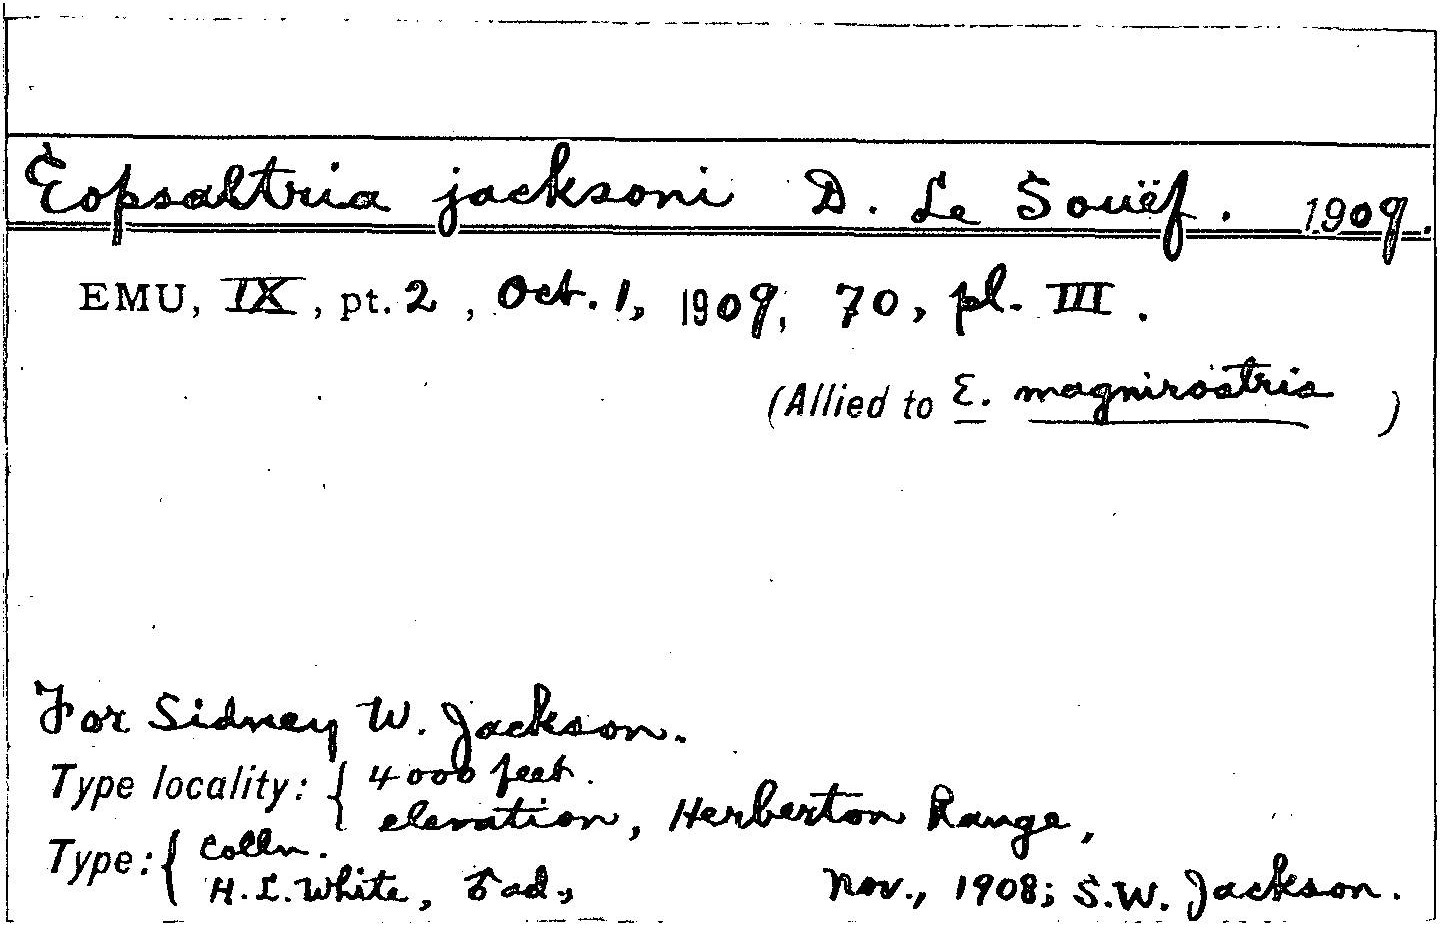 Eopsaltria jacksoni D. Le Souëf. 1909.
EMU, IX, pt. 2, Oct. 1, 1909, 70, pl. III.
(Allied to E. magnirostris)
For Sidney W. Jackson.
Type locality: { 4000 feet.
elevation, Herberton Range,
Type: { Colln.
H. L. White, ad., Nov., 1908; S.W. Jackson.